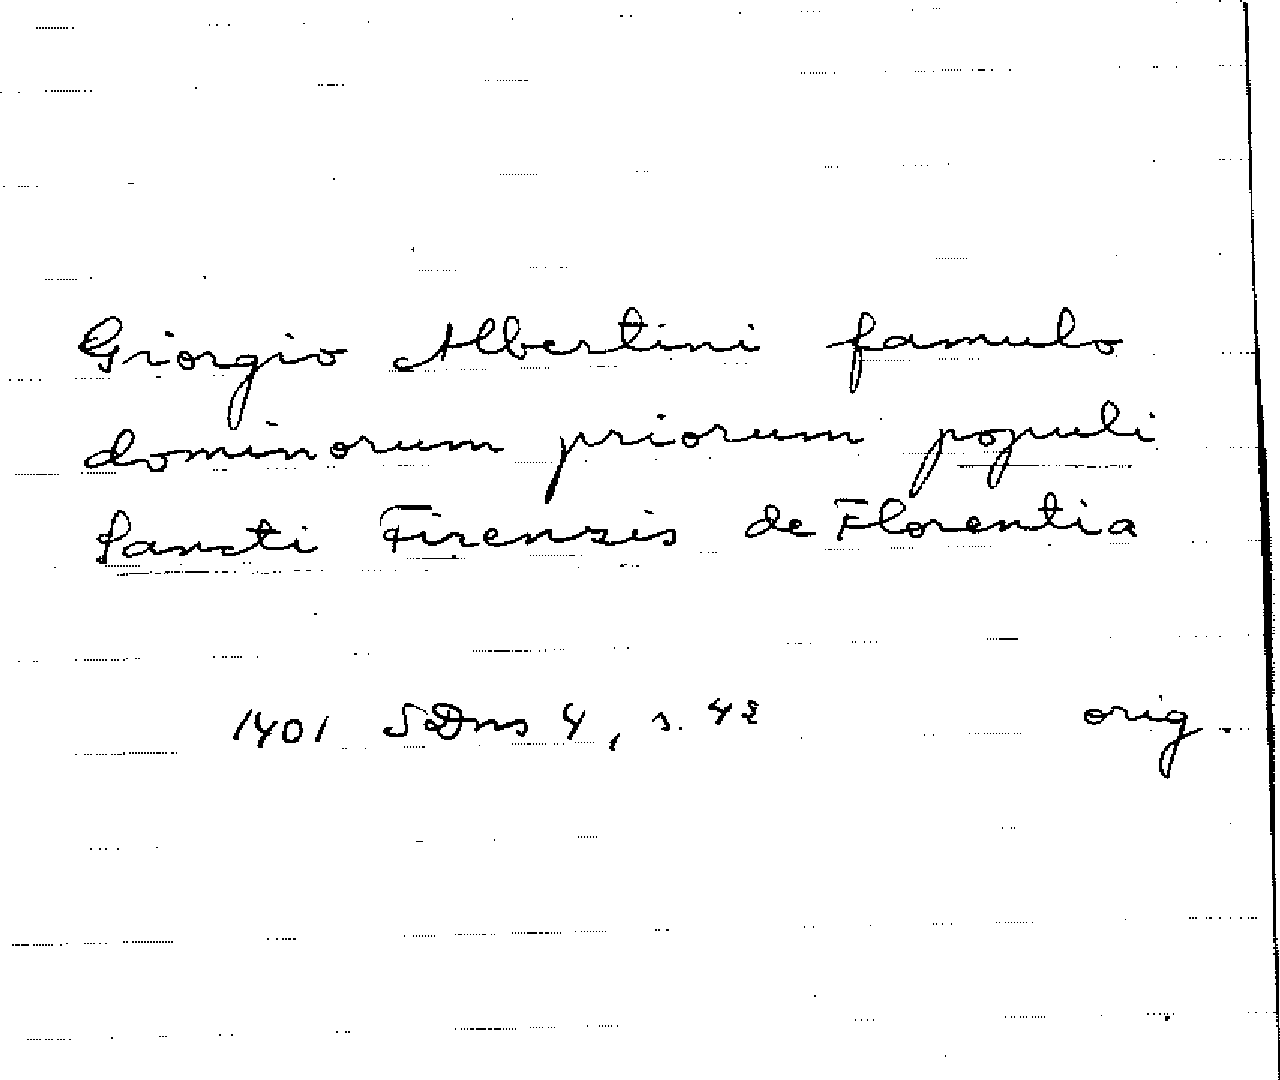 Giorgio Albertini famulo
dominorum priorum populi
Sancti Firensis de Florentia
1401 SDns 4, s. 42 orig.